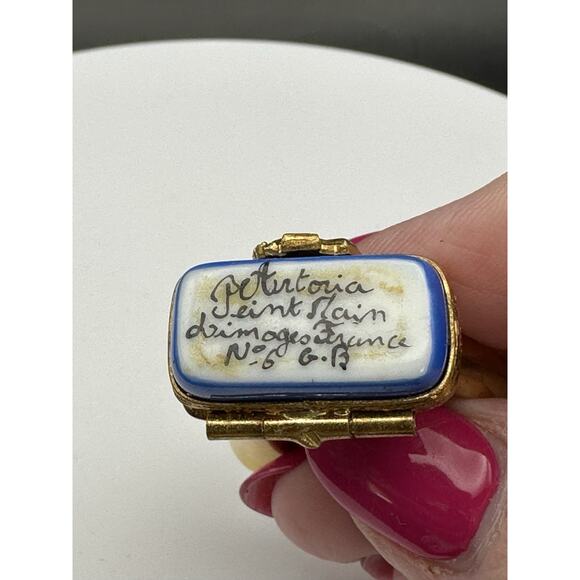 P. Artoria
Peint Main
Limoges France
No 6 G.B